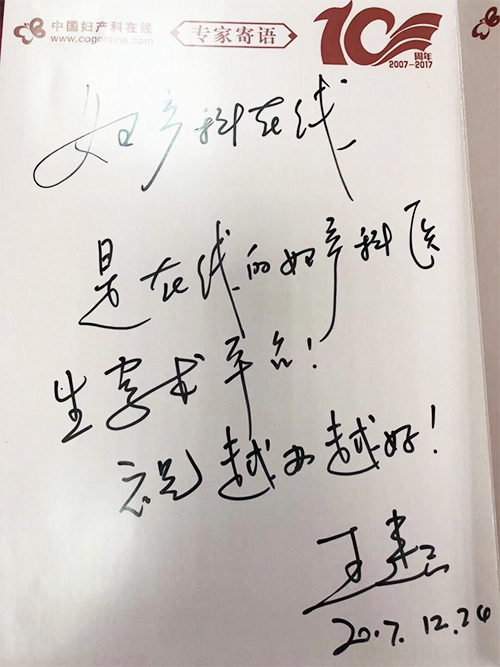 中国妇产科在线
www.cogonline.com
专家寄语
10周年
2007-2017
妇产科在线
是在线的妇产科医
生学术平台!
越办越好!
2017.12.24